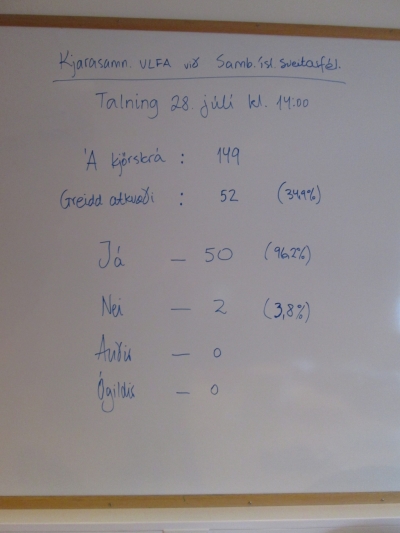 Kjarasamn. VLFA við Samb. ísl. sveitarfél.
Talning 28. júlí kl. 14:00
Á kjörskrá : 149
Greidd atkvæði : 52 (34,9%)
Já — 50 (96,2%)
Nei — 2 (3,8%)
Auðir — 0
Ógildir — 0